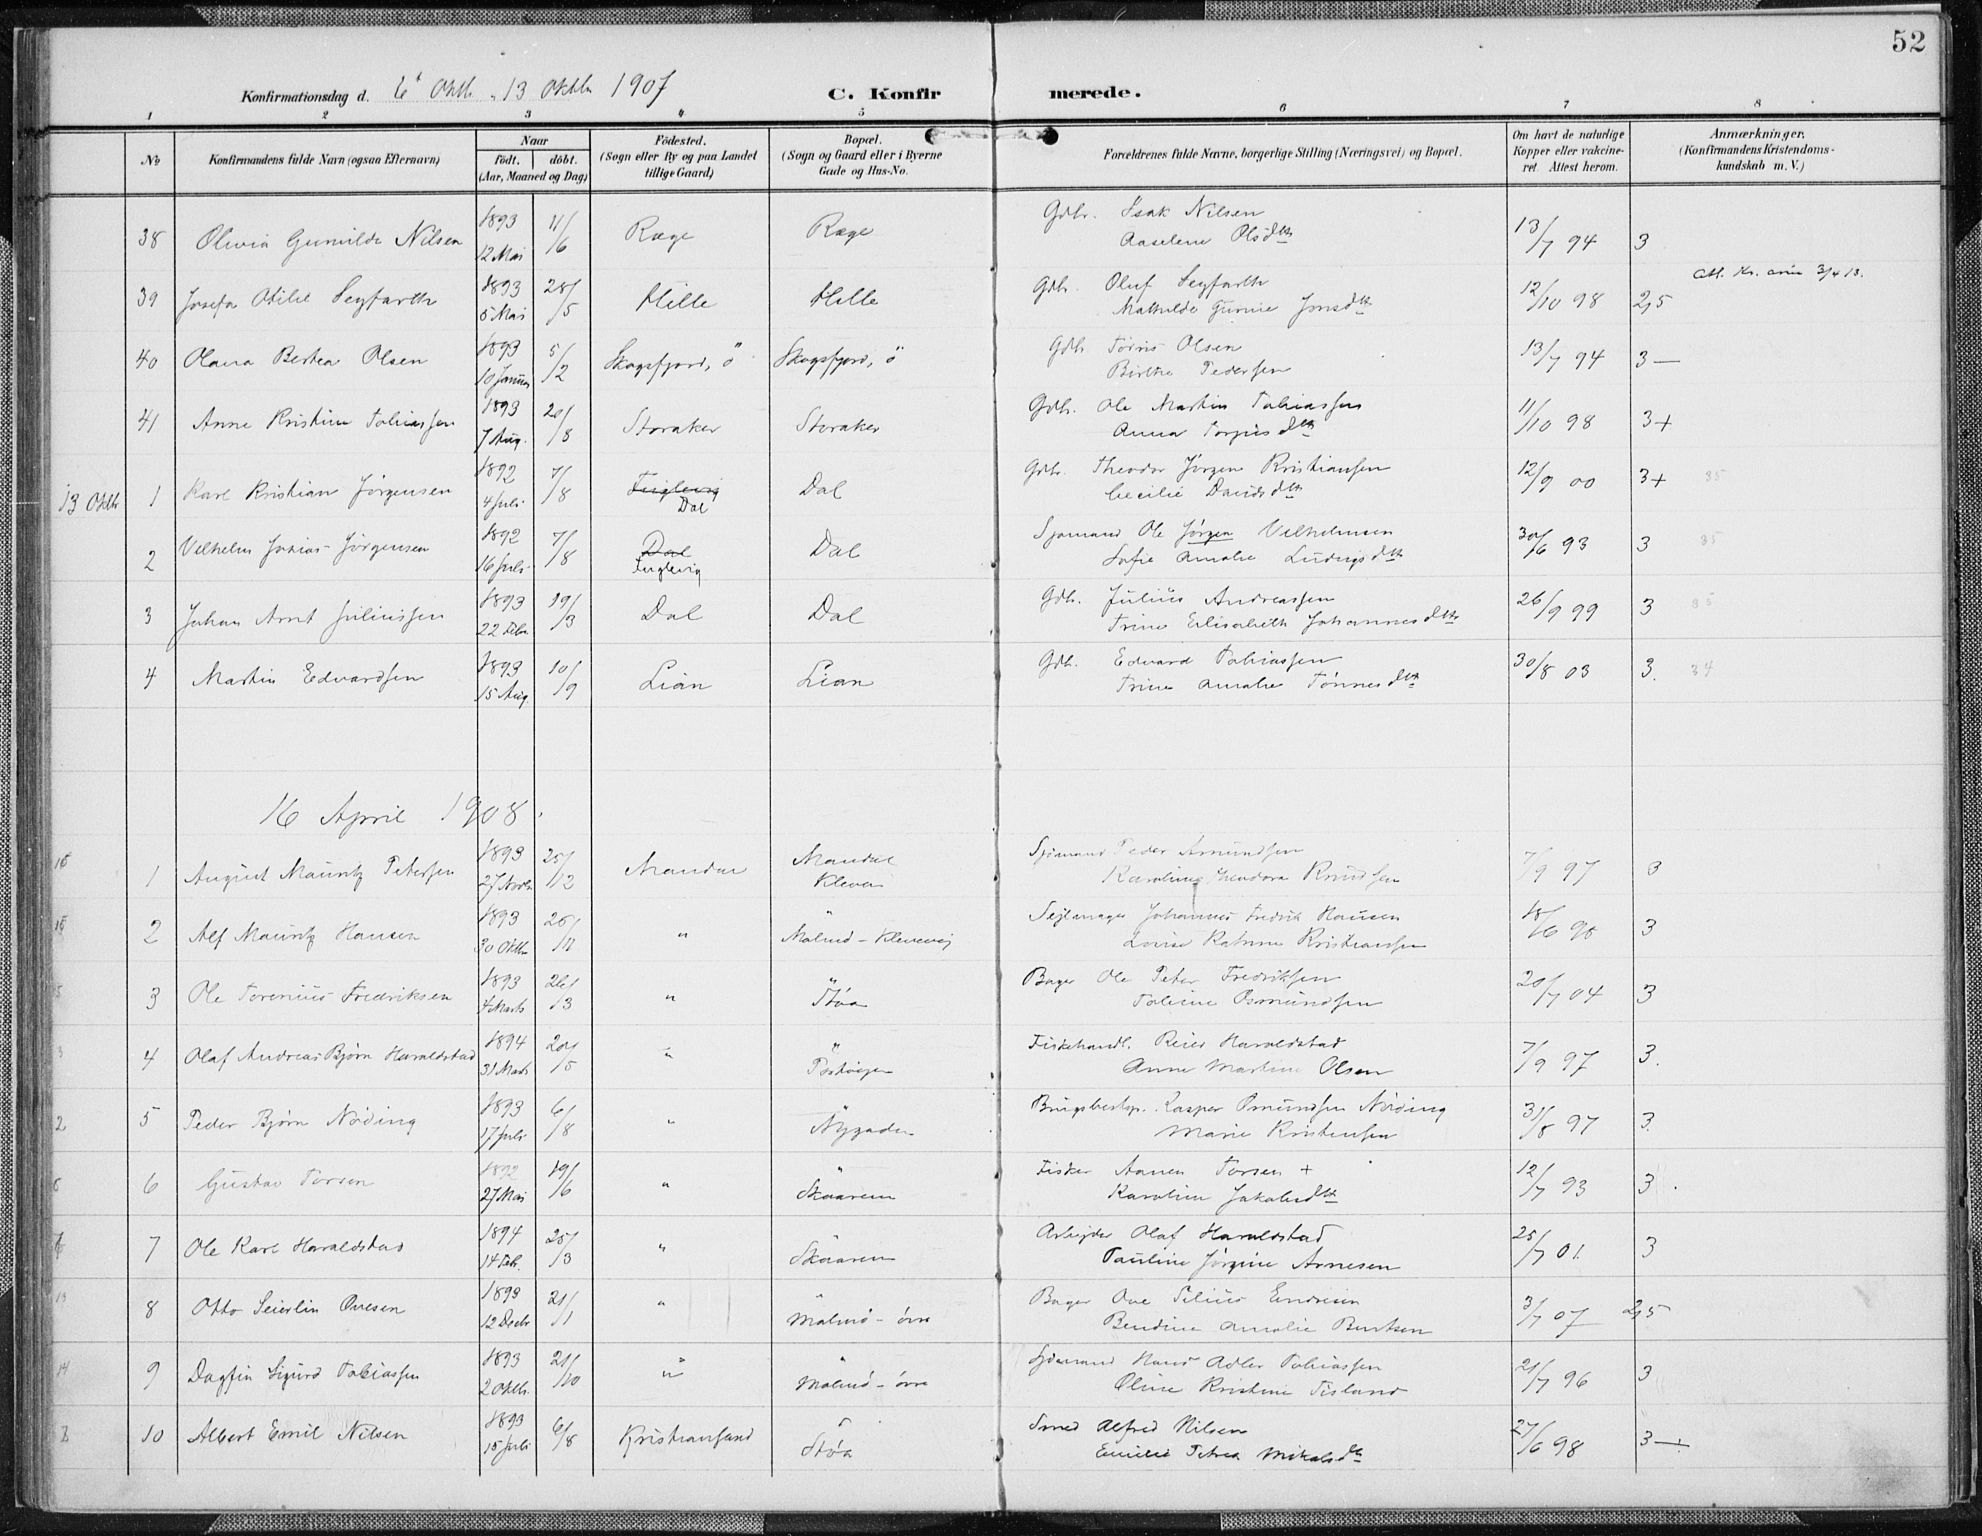 52
Konfirmationsdag d. 6te Oktb. 13 Oktbr 1907 C. Konfirmerede.
1 2 3 4 5 6 7 8
No
Konfirmandens fulde Navn (ogsaa Efternavn)
Naar
født. døbt.
(Aar, Maaned og Dag)
Fødested.
(Sogn eller By og paa Landet
tillige Gaard)
Bopæl.
(Sogn og Gaard eller i Byerne
Gade og Hus-No.
Forældrenes fulde Navne, borgerlige Stilling (Næringsvei) og Bopæl.
Om havt de naturlige
Kopper eller vakcine-
ret. Attest herom.
Anmærkninger.
(Konfirmandens Kristendoms-
kundskab m. V.)
38 Olivia Gunvilde Nilsen 1893 12 Mai 11/6 Ræge Ræge Gdbr. Isak Nilsen
Aaselene Olsdtr 13/7 94 3
39 Josefa Otilie Seyfarth 1893 5 Mai 28/5 Hille Hille Gdb. Oluf Seyfarth
Mathilde Gunvie Jonsdtr 12/10 98 2,5 3/4 13.
40 Olava Bertea Olsen 1893 10 Januar 5/2 Skogsfjord, ö Skogsfjord, ö Gdb. Tønis Olsen
Birthe Pedersen 13/7 94 3 —
41 Anne Kristine Tobiassen 1893 7 Aug. 20/8 Storaker Storaker Gdb. Ole Martin Tobiassen
Anna Torjusdtr 11/10 98 3+
13 Oktbr 1 Karl Kristian Jørgensen 1892 4 Juli 7/8 Fuglevig Dal Dal Gdb. Theodor Jørgen Kristiansen
Cecilie Davidsdtr 12/9 00 3+ 35
2 Vilhelm Jonias Jørgensen 1892 16 Juli 7/8 Dal Fuglevig Dal Sjømand Ole Jørgen Vilhelmsen
Sofie Amalie Ludvigsdtr 30/6 93 3 35
3 Johan Arnt Juliussen 1893 22 Febr. 19/3 Dal Dal Gdb. Julius Andreassen
Trine Elisabeth Johannesdtr 26/9 99 3 35
4 Martin Edvardsen 1893 15 Aug. 10/9 Lian Lian Gdb. Edvard Tobiassen
Trine Amalie Tønnesdtr 30/8 03 3. 34
16 April 1908.
1 August Mauritz Petersen 1893 27 Novbr 25/12 Mandal Mandal
Kleven Sjømand Peder Amundsen
Karoline Theodora Knudsen 7/9 97 3
2 Alf Mauritz Hansen 1893 30 Oktbr 25/12 " " Malmø - Klevevej Sejlmager Johannes Fredrik Hansen
Lovise Katrine Kristiansen 18/6 98 3
3 Ole Torenius Fredriksen 1893 4 Marts 26/3 " " Støa Bager Ole Peter Fredriksen
Tobine Osmundsen 20/7 04 3
4 Olaf Andreas Bjørn Haraldstad 1894 31 Marts 20/5 " " Fiskehandl. Reier Haraldstad
Anne Martine Olsen 7/9 97 3.
2 5 Peder Bjørn Nøding 1893 17 Juli 6/8 " " Nygaden Brugsbestyr. Kasper Osmundsen Nøding
Marie Kristensen 31/8 97 3.
6 Gustav Torsen 1892 27 Mai 19/6 " " Skaaren Fisker Aanen Torsen +
Karoline Jakobsdtr 12/7 93 3.
7 Ole Karl Haraldstad 1894 14 Feb. 25/3 " " Skaaren Arbejder Olaf Haraldstad
Pauline Jørgine Arnesen 25/7 01. 3
8 Otto Seierlin Ovesen 1893 12 Decbr 21/1 " " Malmø - øvre Bager Ove Tilius Endresen
Bendine Amalie Berntsen 3/7 07 2,5
14 9 Dagfin Sigurd Tobiassen 1893 2 Oktb. 21/10 " " Malmø - øvre Sjømand Hans Adler Tobiassen
Oline Kristine Tisland 21/7 96 3
10 Albert Emil Nilsen 1893 15 Juli 6/8 Kristiansand " Støa Smed Alfred Nilsen
Emilie Petrea Mikalsdtr 27/6 98 3 —